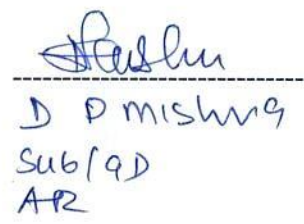 D D Mishra
Sub/AD
AR